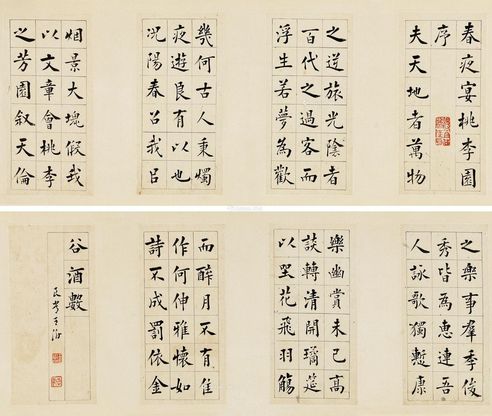 春夜宴桃李園
序
夫天地者萬物
之逆旅光陰者
百代之過客而
浮生若夢為歡
幾何古人秉燭
夜遊良有以也
况陽春召我㠯
烟景大塊假我
以文章會桃李
之芳園叙天倫
之樂事羣季俊
秀皆為惠連吾
人詠歌獨慙康
樂幽賞未已高
談轉清開瓊筵
以坐花飛羽觴
而醉月不有佳
作何伸雅懷如
詩不成罰依金
谷酒數